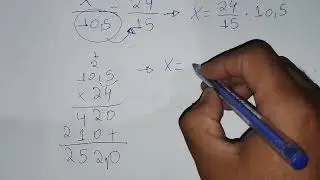 x/10,5 = 24/15 → X = 24/15 . 10,5
1
2
10,5 → X =
x 24
4 20
2 10 +
25 2,0